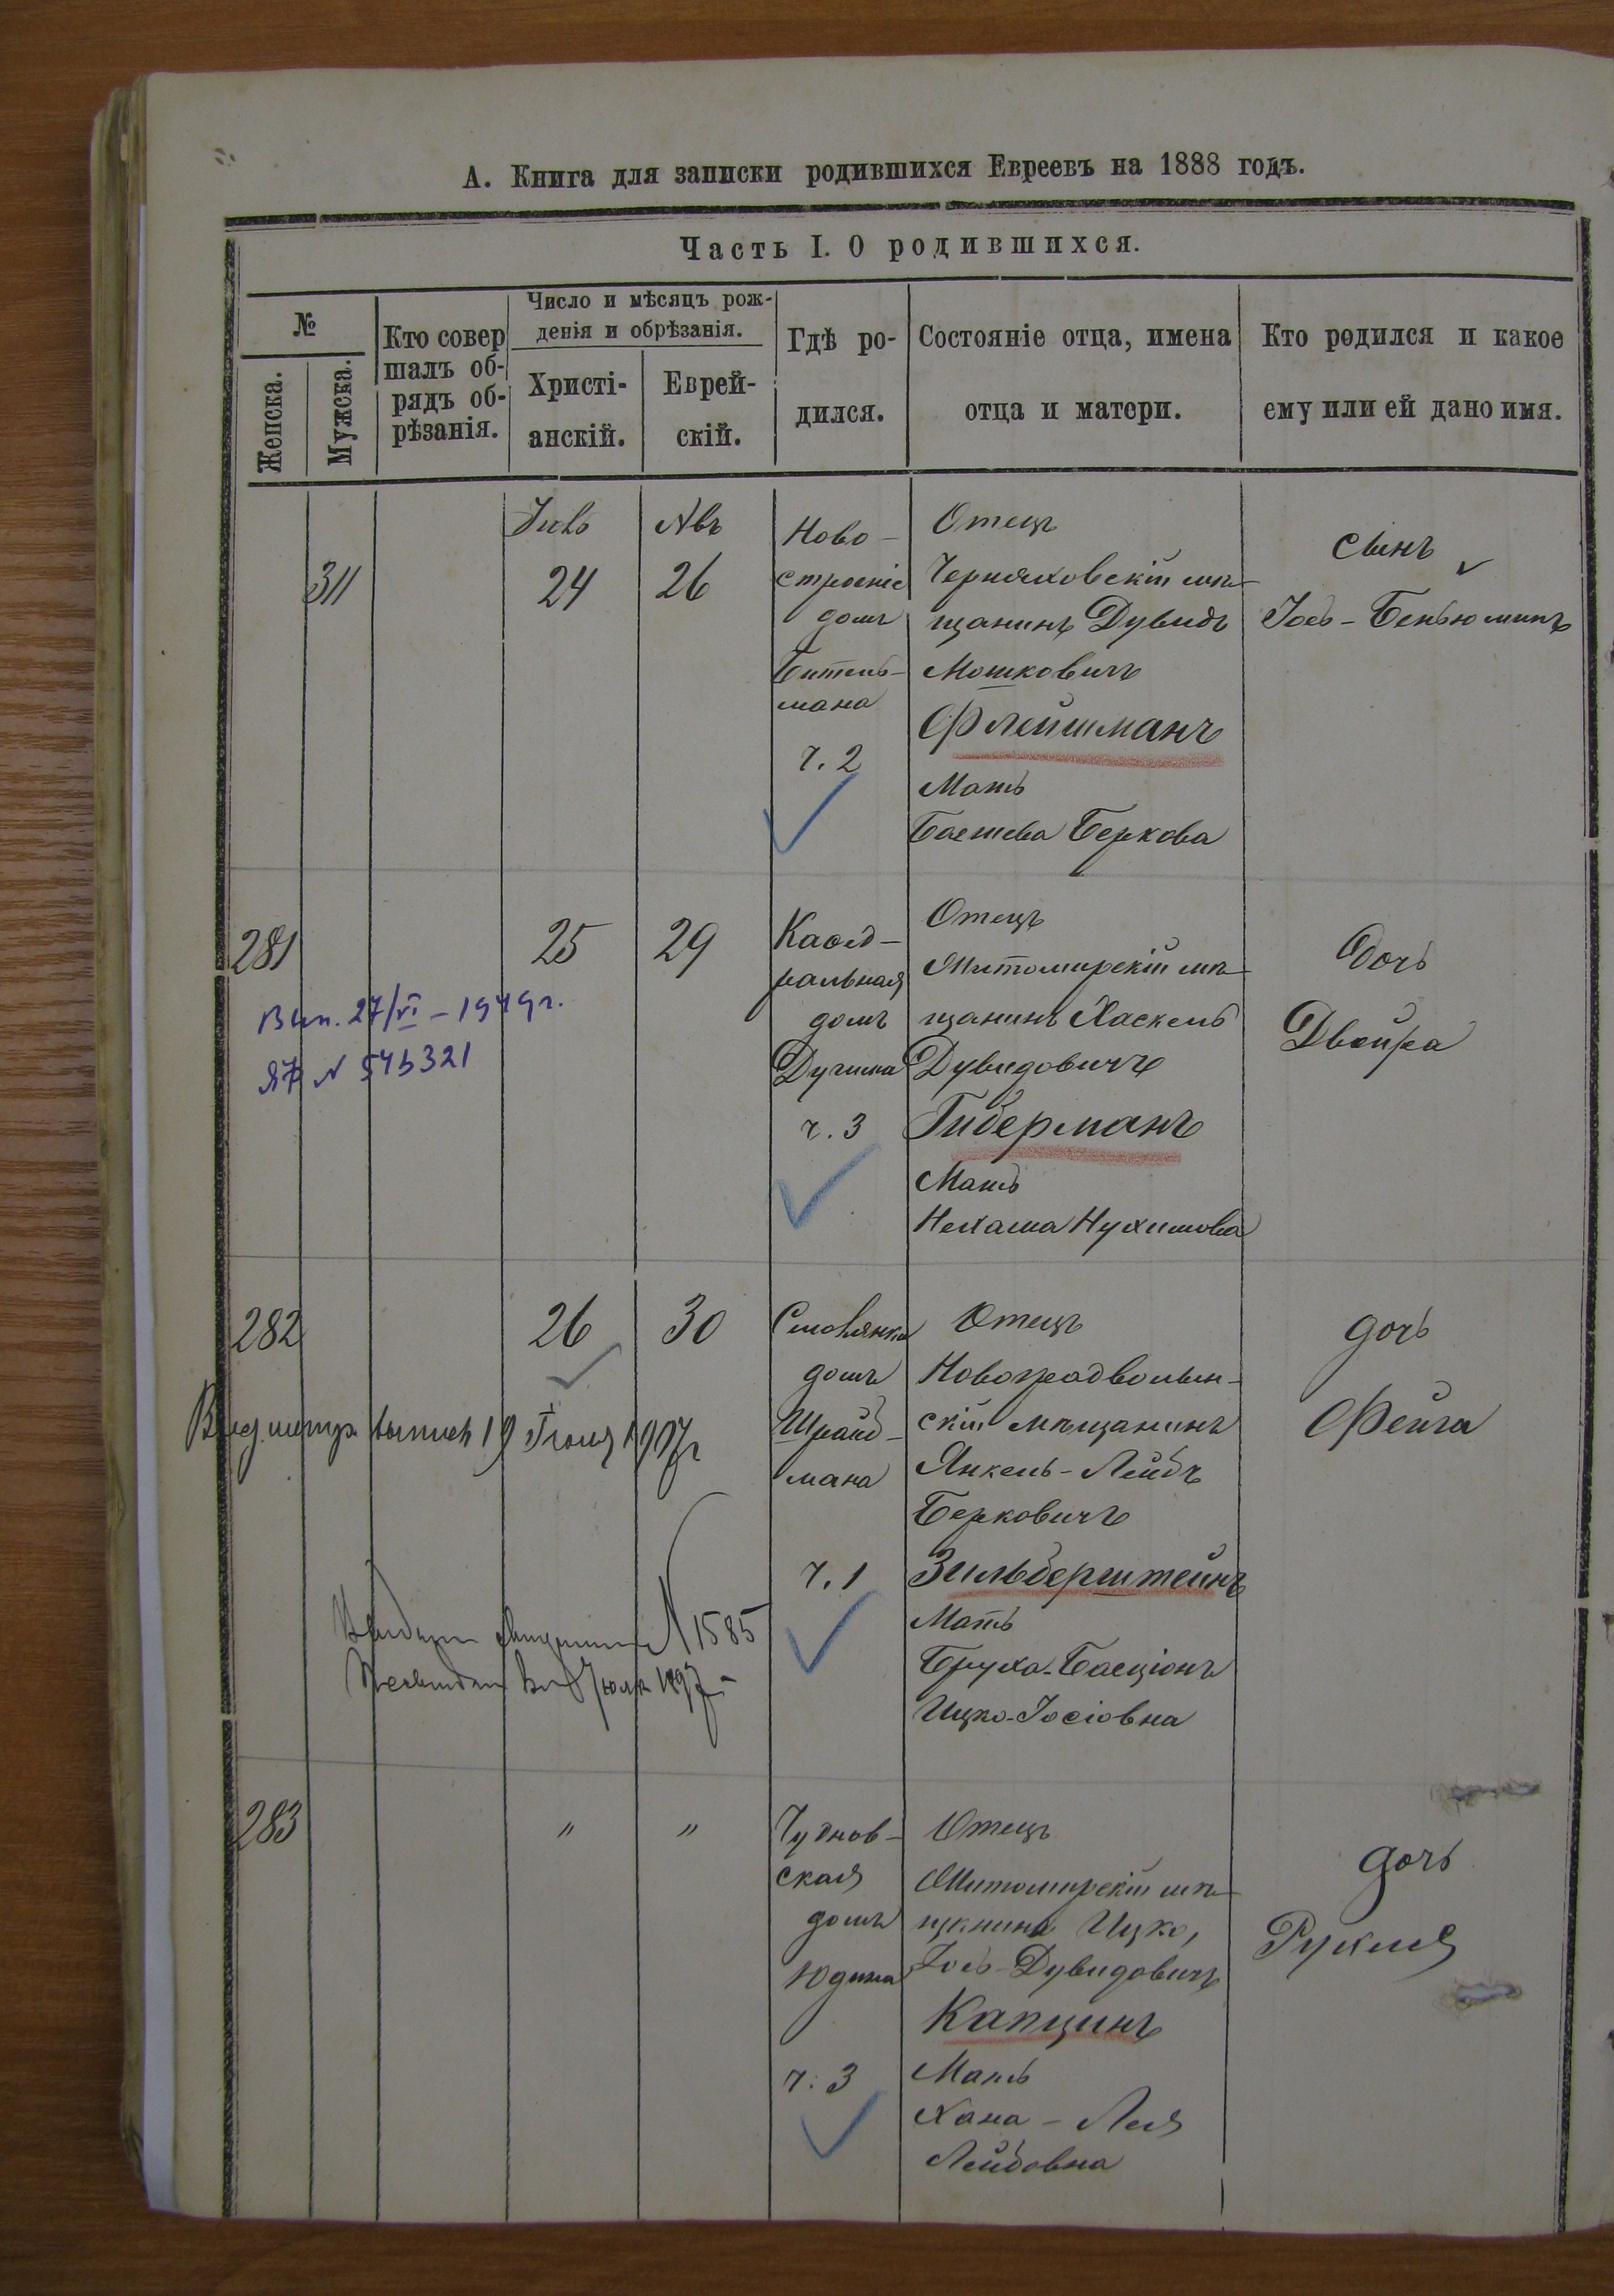 А. Книга для записки родившихся Евреевъ на 1888 годъ.
Часть I. О родившихся.
№
Женска.
Мужска.
Кто совер
шалъ об-
рядъ об-
рѣзанія.
Число и мѣсяцъ рож-
денія и обрѣзанія.
Христі-
анскій.
Еврей-
скій.
Гдѣ ро-
дился.
Состояніе отца, имена
отца и матери.
Кто родился и какое
ему или ей дано имя.
311
24
Авъ
26
Ново-
строеніе
домъ
Битель-
мана
ч. 2
Отецъ
Черняховскій мѣ-
щанинъ Дувидъ
Мошковичъ
Флейшманъ
Мать
Басшева Беркова
сынъ
Іось-Беньюминъ
281
25
29
Каѳед-
ральная
домъ
ч. 3
Отецъ
Житомирскій мѣ-
щанинъ Хаскель
Дувидовичъ
Гиберманъ
Мать
Нехама Нухимова
дочь
Двойра
Вып. 27/VI - 1949 г.
ЯФ № 545321
282
26
30
Смолянка
домъ
Шрайб-
мана
ч. 1
Отецъ
Новоградволын-
скій мѣщанинъ
Янкель-Лейбъ
Берковичъ
Зильберштейнъ
Мать
Бруха-Басціонъ
Ицко-Іосіовна
дочь
Фейга
19 Іюля 1907 г
№ 1585
283
"
"
Чуднов-
ская
домъ
Юдина
ч. 3
Отецъ
Житомирскій мѣ-
щанинъ Ицко,
Іось-Дувидовичъ
Капцинъ
Мать
Хана - Лея
Лейбовна
дочь
Рухля